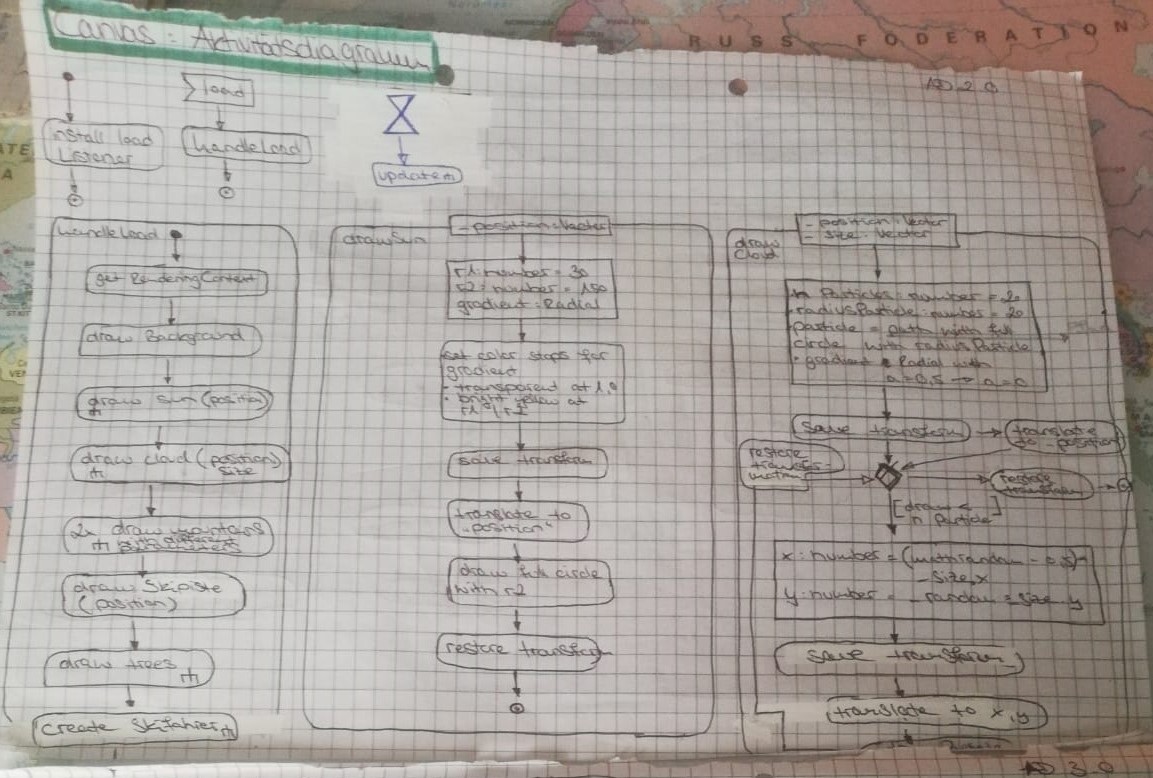 RUSS FODERATION
Canvas : Aktivitätsdiagramm
AD 2.0
load
install load
Listener
handleLoad
update
handleLoad
get RenderingContext
draw Background
draw Sun (position)
draw cloud (position)
size
2x draw mountains
with different
draw Skipiste
(position)
draw trees
create Skifahrer
drawSun
- position: Vector
r1: number = 30
r2: number = 150
gradient: Radial
set color stops for
gradient
- transparent at 1,0
- bright yellow at
r1 / r2
save transform
translate to
"position"
draw full circle
with r2
restore transform
draw
Cloud
- position: Vector
- size: Vector
n Particles: number = 20
radiusParticle: number = 20
particle = path with full
circle with radiusParticle
gradient = Radial with
a = 0,5 → a = 0
save transform
translate
to -position
restore
restore
transform
[draw <
n Particle]
x: number = (math random - 0,5)
- size.x
y: number = - random = size y
save transform
translate to x,y
AD 3.0